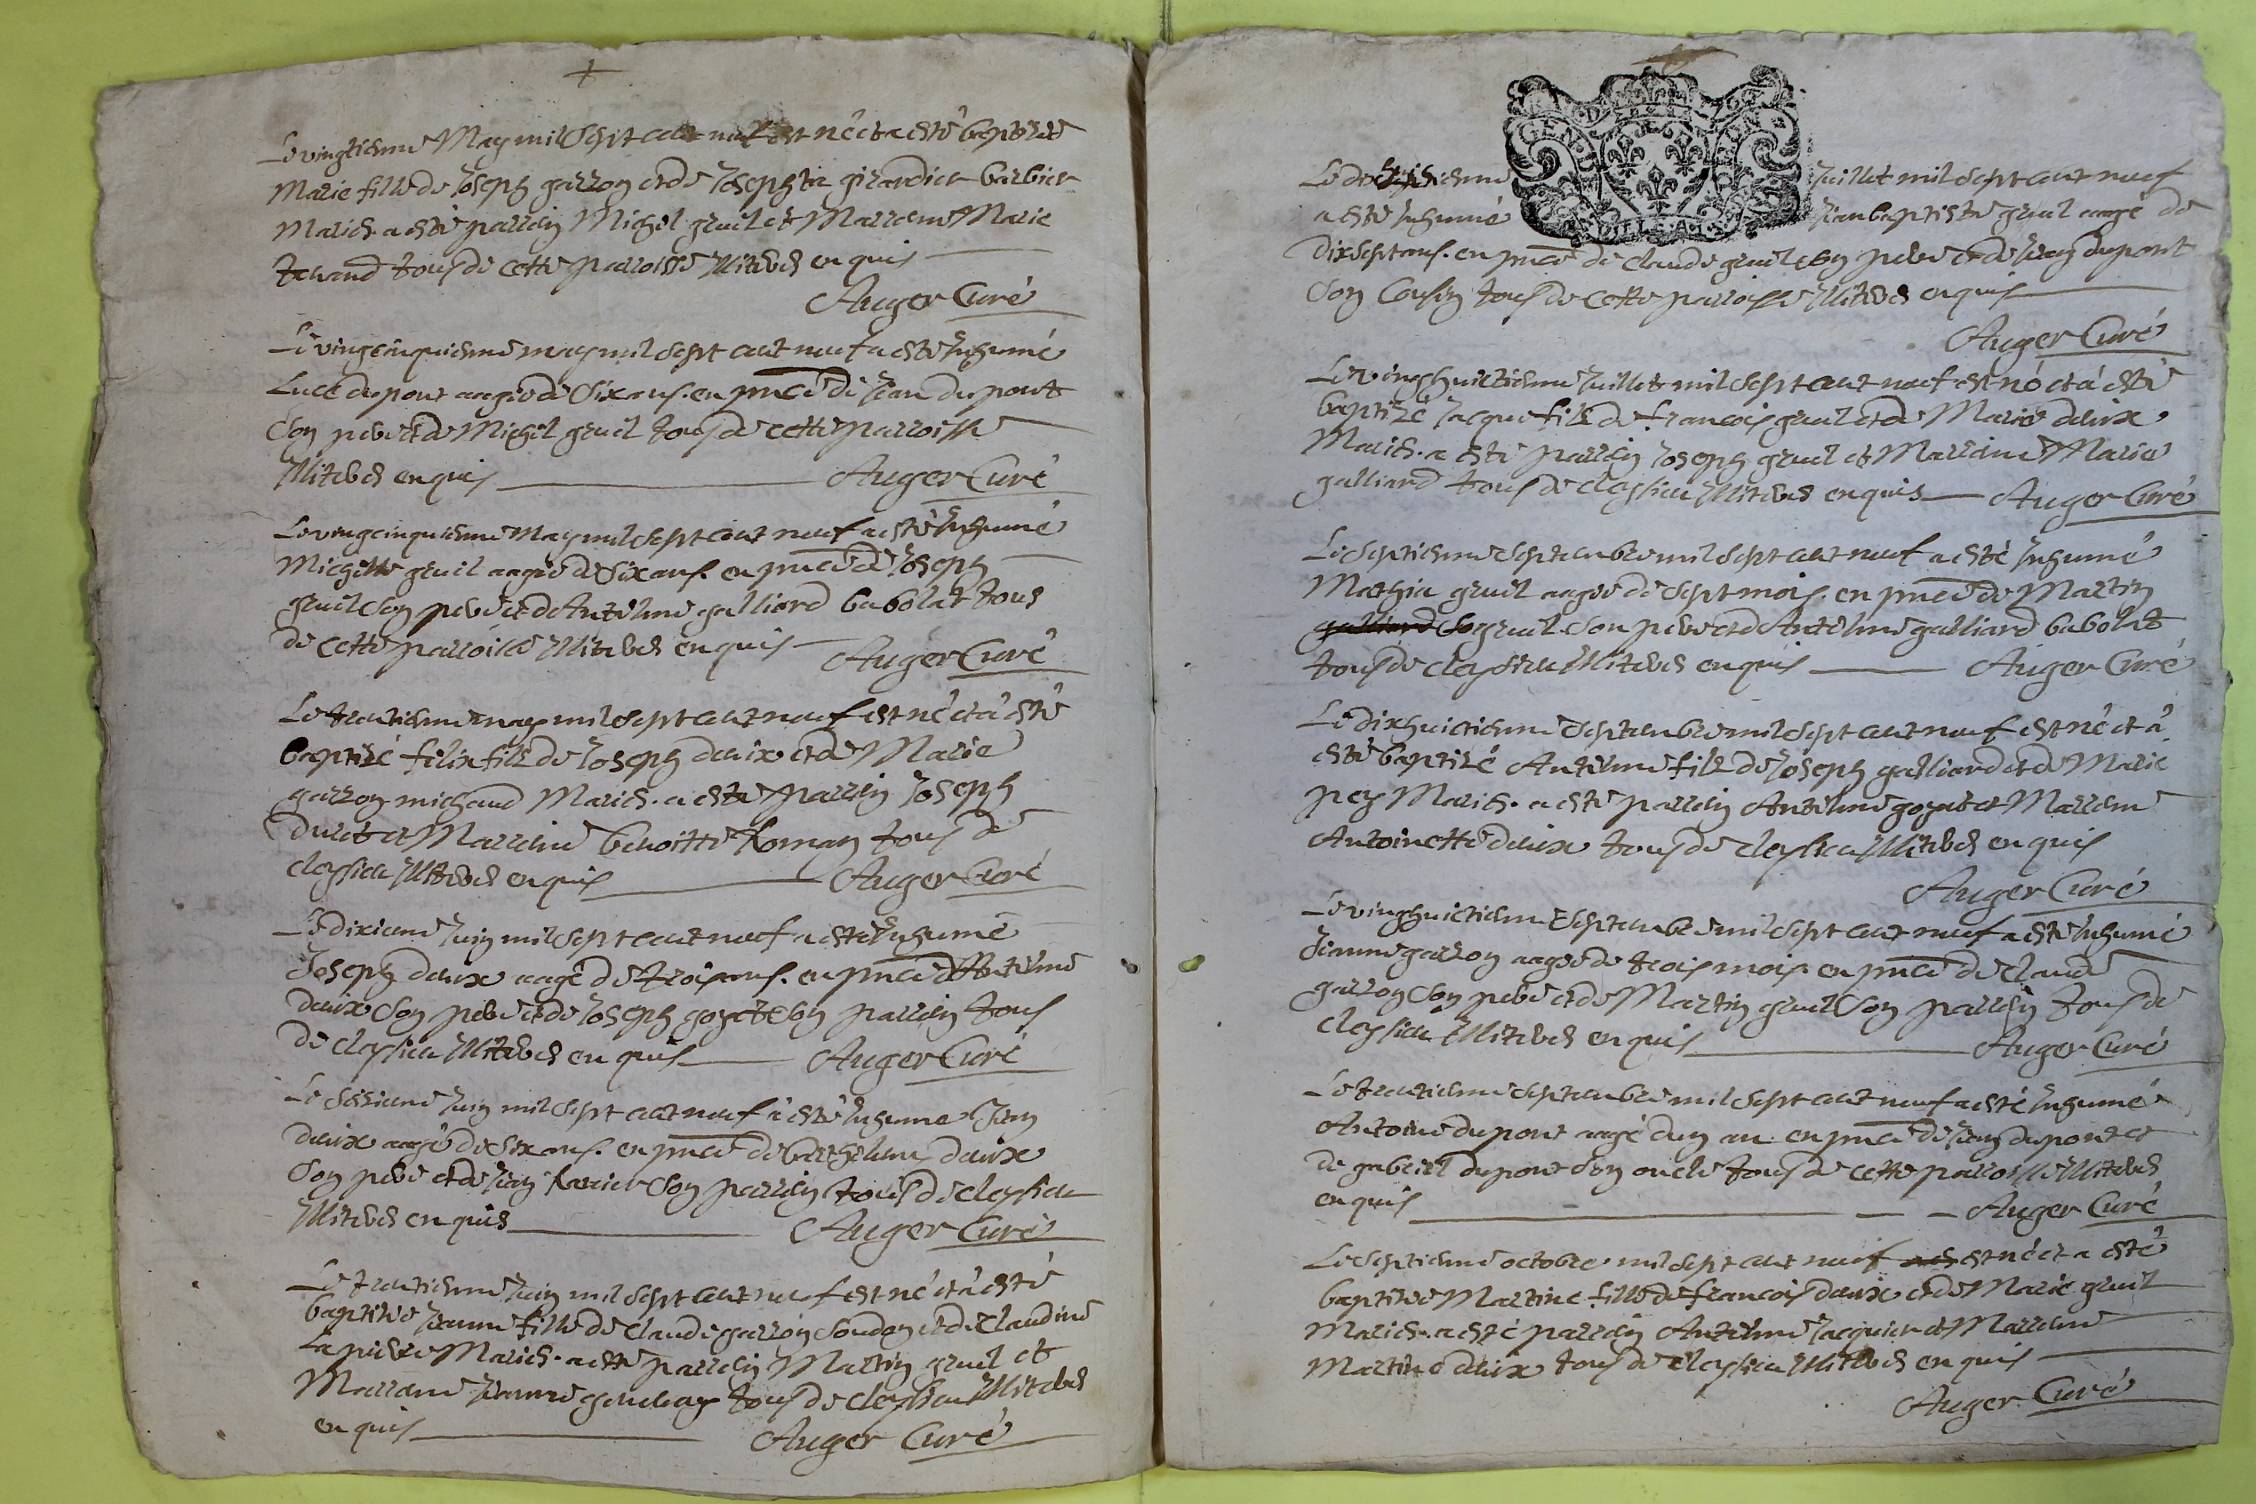 Le vingtieme May mil sept cent neuf est né et a esté baptisée
Marie fille de Joseph garron et de Josephte girardier barbier
Mariés. a esté parrein Michel gruel et Marreine Marie
tous de cette parroisse Illiterés enquis
Auger Curé
Le vingcinquieme may mil sept cent neuf a esté Inhumé
Luce dupont aagée de six ans. en pnce de Jean dupont
Son pere et de Michel gruel tous de cette parroisse
Illiterés enquis Auger Curé
Le vingcinquieme May mil sept cent neuf a esté Inhumé
Michette gruel aagée de six ans. en pnce de Joseph
gruel son pere et de Antelme galliard babolat tous
de cette parroisse Illiterés enquis Auger Curé
Le trentieme may mil sept cent neuf est né et a esté
baptizé felix fils de Joseph deuix et de Marie
garron michaud Mariés. a esté parrein Joseph
duret et Marreine benoitte Roman tous de
cleysieu Illiterés enquis Auger Curé
Le dixieme Juin mil sept cent neuf a esté Inhumé
Joseph deuix aagé de trois ans. en pnce d'Antelme
deuix son pere et de Joseph goyet son parrein tous
de cleysieu Illiterés enquis Auger Curé
Le seizieme Juin mil sept cent neuf a esté Inhumé Jean
deuix aagé de six ans. en pnce de barthelemy deuix
Son pere et de Jean son parrein tous de cleysieu
Illiterés enquis Auger Curé
Le trentieme Juin mil sept cent neuf est né et a esté
baptisée Jeanne fille de Claude garron soudon et de Claudine
Lapierre Mariés. a esté parrein Martin gruel et
Marreine Jeanne tous de cleysieu Illiterés
enquis Auger Curé
GEN DE
Le dixseptieme Juillet mil sept cent neuf
a esté Inhumé Jean baptiste gruel aagé de
dix sept ans. en pnce de Claude gruel son pere et de Jean dupont
Son Cousin tous de cette parroisse Illiterés enquis
Auger Curé
Le vinghuictieme Juillet mil sept cent neuf est né et a esté
baptizé Jacque fils de francois gruel et de Marie deuix
Mariés. a esté parrein Joseph gruel et Marreine Marie
galliard tous de cleysieu Illiterés enquis Auger Curé
Le septieme septembre mil sept cent neuf a esté Inhumé
Mathia gruel aagée de sept mois. en pnce de Martin
galliard so gruel son pere et d'Antelme galliard babolat
tous de cleysieu Illiterés enquis Auger Curé
Le dixhuictieme septembre mil sept cent neuf est né et a
esté baptizé Antelme fils de Joseph galliard et de Marie
pey Mariés. a esté parrein Antelme goyet et Marreine
Antoinette deuix tous de cleysieu Illiterés enquis
Auger Curé
Le vinghuictieme septembre mil sept cent neuf a esté Inhumé
Jeanne garron aagée de trois mois en pnce de Claude
garron son pere et de Martin gruel son parrein tous de
cleysieu Illiterés enquis Auger Curé
Le trentieme septembre mil sept cent neuf a esté Inhumé
Antoine dupont aagé dun an. en pnce de Jean dupont et
de gabriel dupont son oncle tous de cette parroisse Illiterés
enquis Auger Curé
Le septieme octobre mil sept cent neuf est né et a esté
baptisée Martine fille de francois deuix et de Marie gruel
Mariés. a esté parrein Antelme Jacquier et Marreine
Martine deuix tous de cleysieu Illiterés enquis
Auger Curé